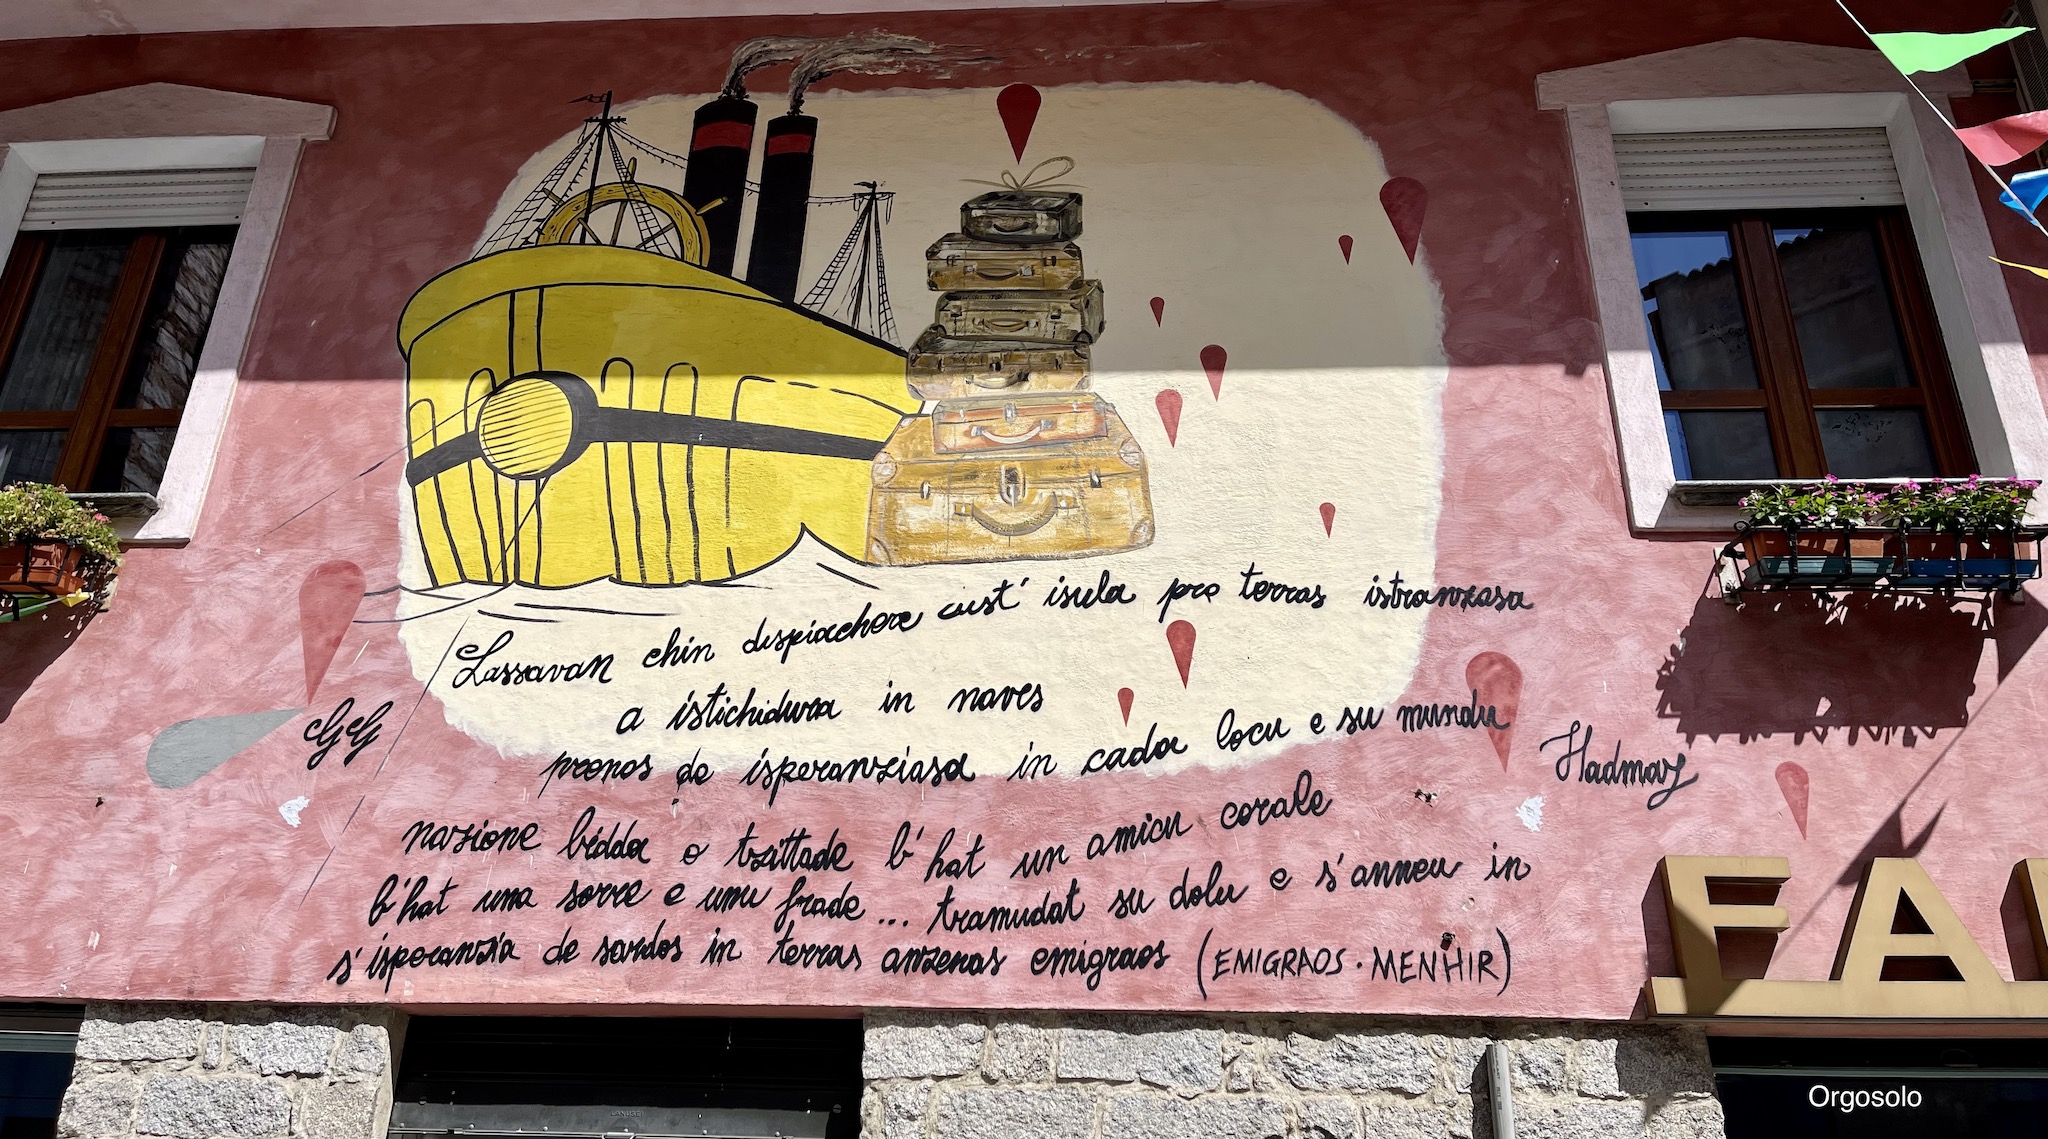 Lassavan chin dispiachere cust' isula pro terras istranzasa
a istichidura in naves
GG
prenos de isperanziasa in cada locu e su mundu
Hadmay
nazione bidda o tzittade b'hat un amicu corale
b'hat una sorre e unu frade... tramudat su dolu e s'anneu in
s'isperanzia de sardos in terras anzenas emigraos (EMIGRAOS · MENHIR)
FA
Orgosolo